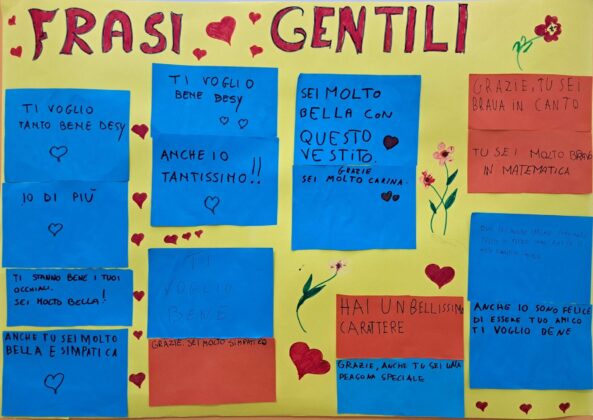 FRASI GENTILI
TI VOGLIO
TANTO BENE DESY
IO DI PIÙ
TI STANNO BENE I TUOI
OCCHIALI.
SEI MOLTO BELLA!
ANCHE TU SEI MOLTO
BELLA E SIMPATICA
TI VOGLIO
BENE DESY
ANCHE IO
TANTISSIMO!!
TI
VOGLIO
BENE
GRAZIE. SEI MOLTO SIMPATICO
SEI MOLTO
BELLA CON
QUESTO
VESTITO.
GRAZIE
SEI MOLTO CARINA.
HAI UN BELLISSIMO
CARATTERE
GRAZIE, ANCHE TU SEI UNA
PERSONA SPECIALE
GRAZIE, TU SEI
BRAVA IN CANTO
TU SEI MOLTO BRAVO
IN MATEMATICA
ANCHE IO SONO FELICE
DI ESSERE TUO AMICO
TI VOGLIO BENE